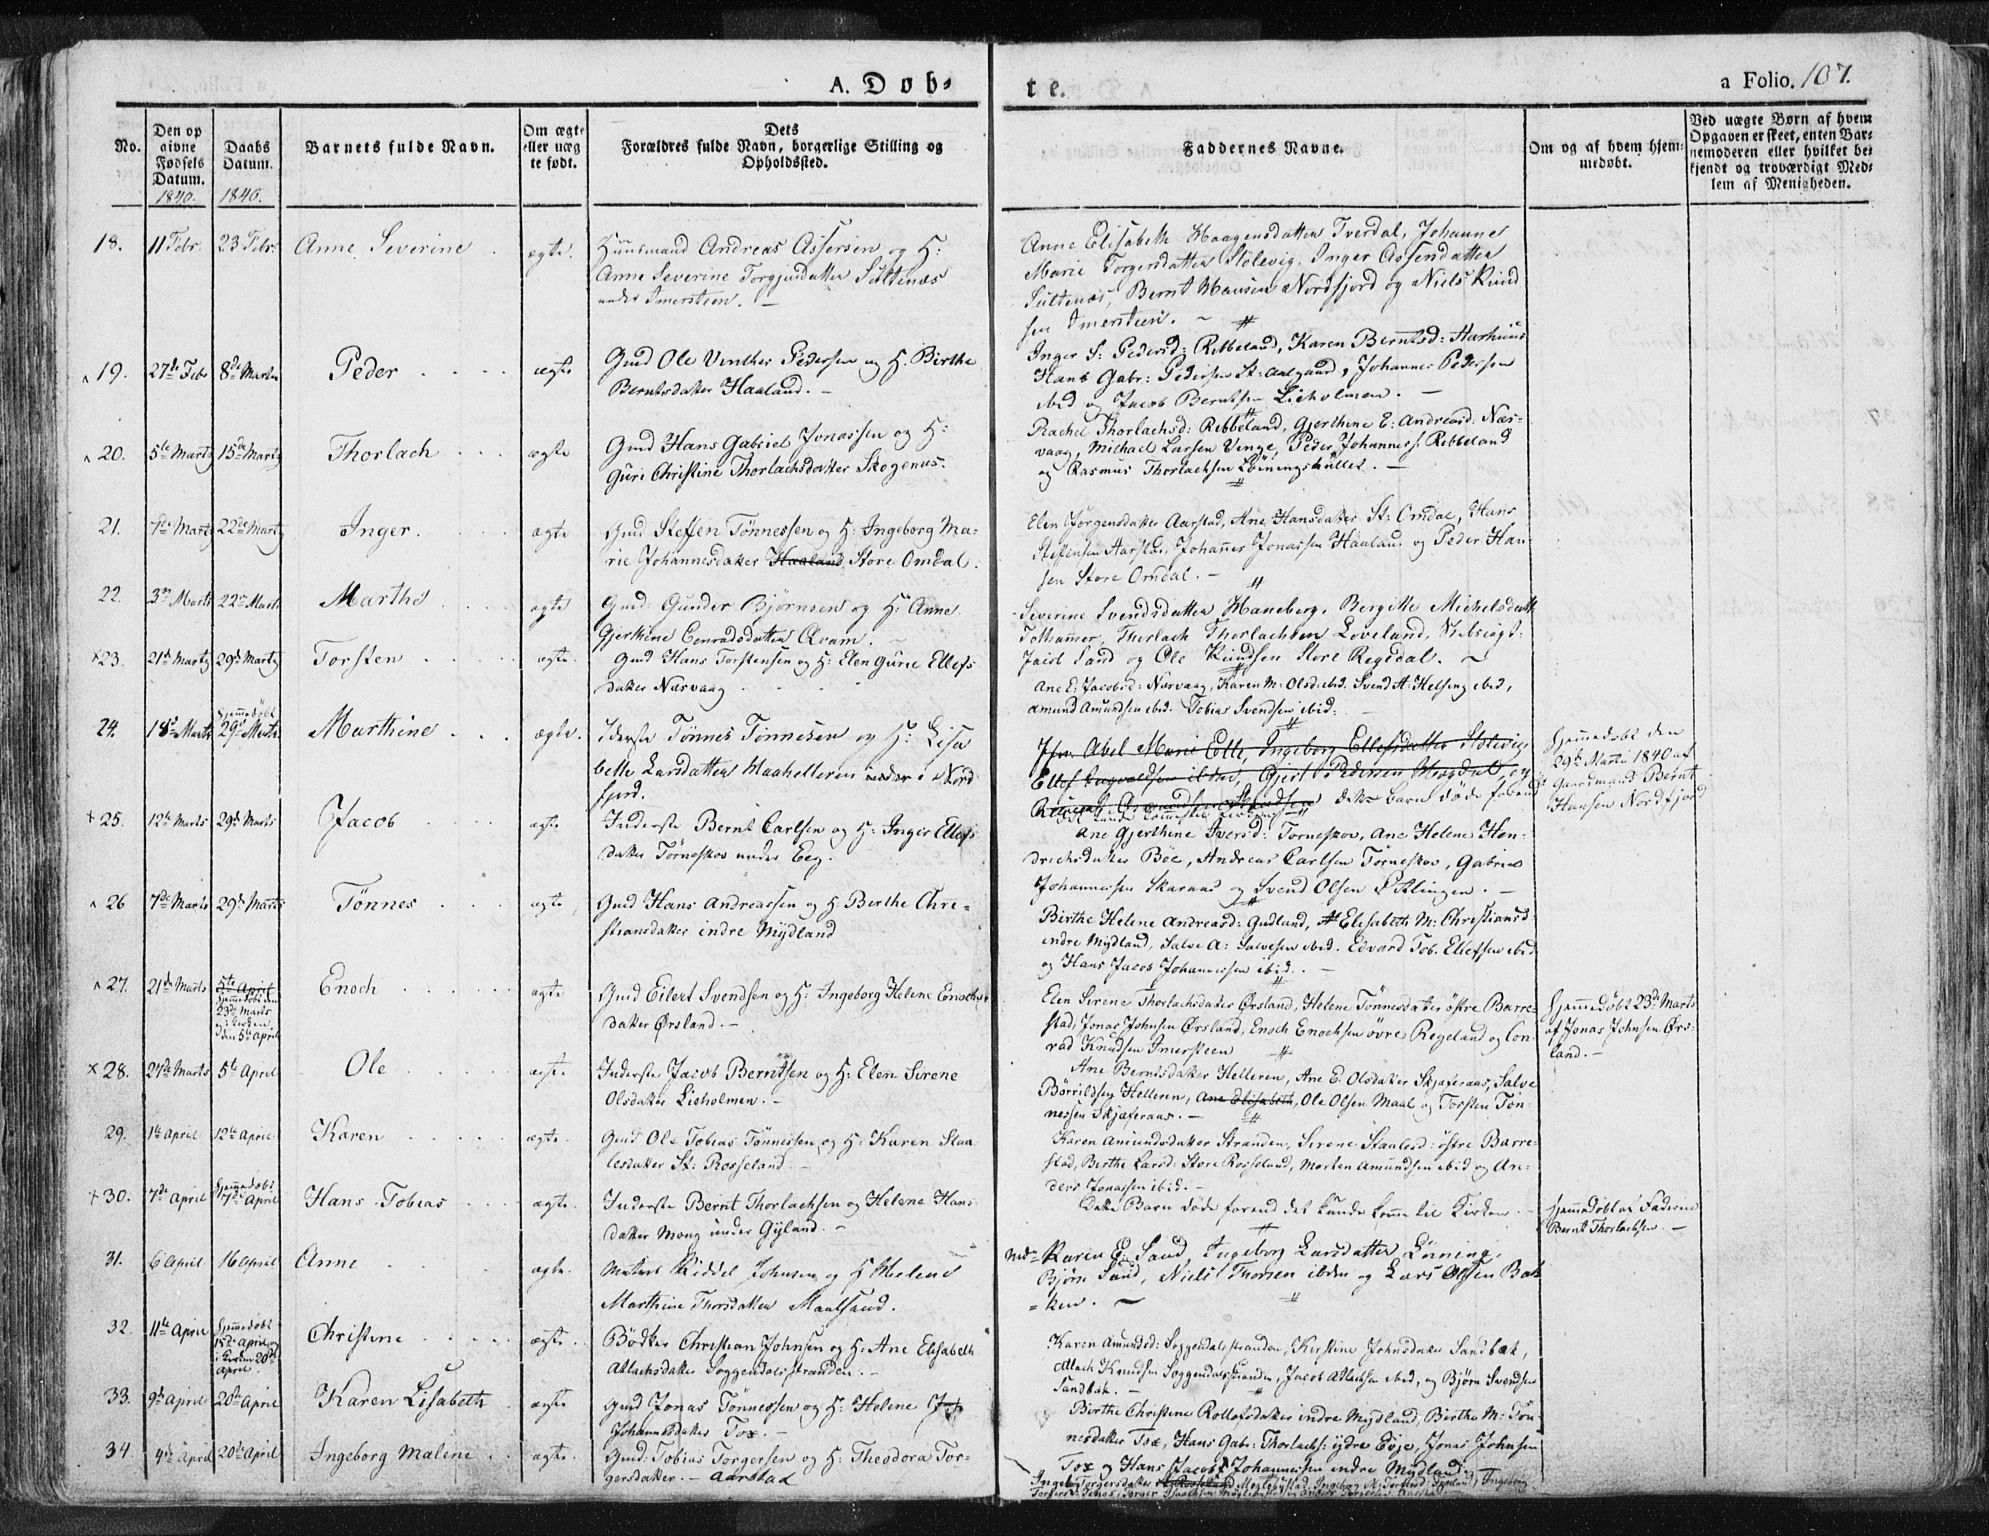 A. Dob-
te.
a Folio. 107.
No.
Den op
givne
Fødsels
Datum.
1840.
Daabs
Datum.
1840.
Barnets fulde Navn.
Om ægte
eller uæg
te født.
Dets
Forældres fulde Navn, borgerlige Stilling og
Opholdssted.
Faddernes Navne.
Om og af hvem hjem-
medøbt.
Ved uægte Børn af hvem
Opgaven er skeet, enten Bar-
nemoderen eller hvilket be-
kjendt og troværdigt Med-
lem af Menigheden.
18. 11 Febr. 23 Febr. Anne Severine ægte.
Huusmand Andreas Assersen og H:
Anne Severine Torgjusdatter Sultenæs
under Imersteen. -
Anne Elisabeth Haagensdatter Tverdal, Johanne
Marie Torgersdatter Stølevig, Inger Assersdatter
Sultenæs, Bernt Hansen Nordfjord og Niels Knud
sen Imersteen. -
19. 27de Febr 8de Marts Peder ægte
Gmd Ole Venthes Pedersen og H. Birthe
Berntsdatter Haaland. -
Inger S: Pedersd: Rebbeland, Karen Berntsd: Aarhuus
Hans Gabr: Pedersen St: Aalgaard, Johannes Pedersen
ibid og Jacob Berntsen Lieholmen. -
20. 5te Marts 15de Marts Thorlach ægte
Gmd Hans Gabriel Jonassen og H:
Guri Christine Thorlachsdatter Skogenus.
Rachel Thorlachsd: Rebbeland, Gjerthine E: Andreasd: Nær-
vaag, Michael Larsen Venge, Peder Johannes: Rebbeland
og Rasmus Thorlachsen Løiningshullet. -
21. 7de Marts 22de Marts Inger. ægte
Gmd Steffen Tønnessen og H: Ingeborg Ma-
rie Johannesdatter Haaland Store Omdal.
Elen Jørgensdatter Aarstad, Ane Hansdatter St: Omdal, Hans
Steffensen Aarstad, Johannes Jonassen Haaland og Peder Han-
sen Store Omdal. -
22. 3die Marts 22de Marts Marthe ægte
Gmd: Gunder Bjørnsen og H: Anne
Gjerthine Conradsdatter Qvam.
Severine Svendsdatter Haneberg, Bergitte Michelsdatt:
Tothammer, Thorlach Thorlachsen Loveland,
Jacob Sand og Ole Knudsen Store Regedal. -
23. 21de Marts 29de Marts Torsten ægte
Gmd Hans Torstensen og H: Elen Gurie Ellefs
datter Nærvaag
Ane E: Jacobsd: Nærvaag, Karen M: Olsd: ibid. Svend A: Helsing ibid,
Amund Amundsen ibid. Tobias Svendsen ibid:
24. 18de Marts hjemmedøbt 29de Marts Marthine ægte.
Iderste Tønnes Tønnesen og H: Lisa
beth Larsdatter Maahelleren under i Nord
fjord.
Jfr: Abel Marie Lolle, Ingeborg Ellefsdatter Stølevig
Ellef Ingvaldsen ibidm, Gjert Pedersen Mægdal, og
dette Barn døde forend
Hjemmedøbt den
29de Marts 1840 af
Gaardmand Bernt
Hansen Nordfjord
25. 12te Marts 29de Marts Jacob ægte
Inderste Bernt Carlsen og H: Inger Ellefs
datter Tørneskov under Eeg.
Ane Gjerthine Iversd: Torneskov, Ane Helene Hen-
drichsdatter Böe, Andreas Carlsen Törneskov, Gabriel
Johannessen Skaraas og Svend Olsen Østlingen. -
26 7de Marts 29de Marts Tønnes ægte
Gmd Hans Andreassen og H Berthe Chri-
stiansdatter indre Mydland
Birthe Helene Andreasd: Gudland, Elisabeth M: Christiansd:
indre Mydland, Salve A: Salvesen ibid. Edvard Tob: Ellefsen ibid
og Hans Jacob Johannessen ibid. -
27. 21de Marts 5te April
hjemmedøbt den
23de Marts
i Kirken
den 5te April
Enoch ægte
Gmd Eilert Svendsen og H: Ingeborg Helene Enochs-
datter Ørsland. -
Elen Sirene Thorlachsdatter Ørsland, Helene Tönnesdatter østre Barre-
stad, Jonas Johnsen Ørsland, Enoch Enochsen övre Regeland og Con-
rad Knudsen Imersteen
Hjemmedøbt 23de Marts
af Jonas Johnsen Ørs-
land. -
28. 24de Marts 5te April Ole ægte
Inderste Jacob Berntsen og H: Elen Sirene
Olsdatter Lieholmen. -
Ane Berntsdatter Helleren, Ane E. Olsdatter Skjæferaas, Salve
Börrildsen Helleren, Ane Elisabeth, Ole Olsen Maal og Torsten Tøn-
nessen Skjæferaas. -
29. 1ste April 12te April Karen ægte.
Gmd Ole Tobias Tönnesen og H: Karen Staa
lesdatter St: Rosseland
Karen Amundsdatter Stranden, Sirene Staalesd: østre Barre-
stad, Berthe Larsd: Store Rosseland, Morten Amundsen ibid og An-
ders Jonassen ibid. -
30. 7de April hjemmedøbt 7de April Hans Tobias ægte.
Inderste Bernt Thorlachsen og Helene Hans
datter Mong under Gyland. -
Dette Barn døde forend det kunde komme til Kirken. -
hjemmedøbt af Faderen
Bernt Thorlachsen. -
31. 6 April 16 April Anne ægte.
Matros Kiddel Johnsen og H Helene
Marthine Thorsdatter Maalsand.
Mdm Karen E: Sand, Ingeborg Larsdatter Løining,
Bjørn Sand, Niels Thorsen ibdm og Lars Olsen Bak
ken. -
32. 11te April
hjemmedøbt
15de April og
i Kirken 20de
April.
Christine ægte.
Bødker Christian Johnsen og H: Ane Elisabeth
Atlachsdatter Soggendalsstranden. -
Karen Amundsd: Soggendalsstranden, Kirstine Johnsdatter Sandbæk,
Atlach Knudsen Soggendalsstranden, Jacob Atlachsen ibid, og Bjørn Svendsen
Sandbæk. -
33. 9de April 20de April Karen Lisabeth ægte
Gmd Jonas Tønnessen og H: Helene
Johannesdatter Tox. -
Birthe Christine Rollofsdatter indre Mydland, Birthe M: Tön-
nesdatter Tox, Hans Gabr: Thorlachs: ydre Eeje, Jonas Johnsen
Tox og Hans Jacob Johannessen indre Mydland.
34. 4de April 20de April Ingeborg Malene ægte.
Gmd: Tobias Torgersen og H: Theodora Tor-
gersdatter. - Aarstad
Ingeborg Torgersdatter